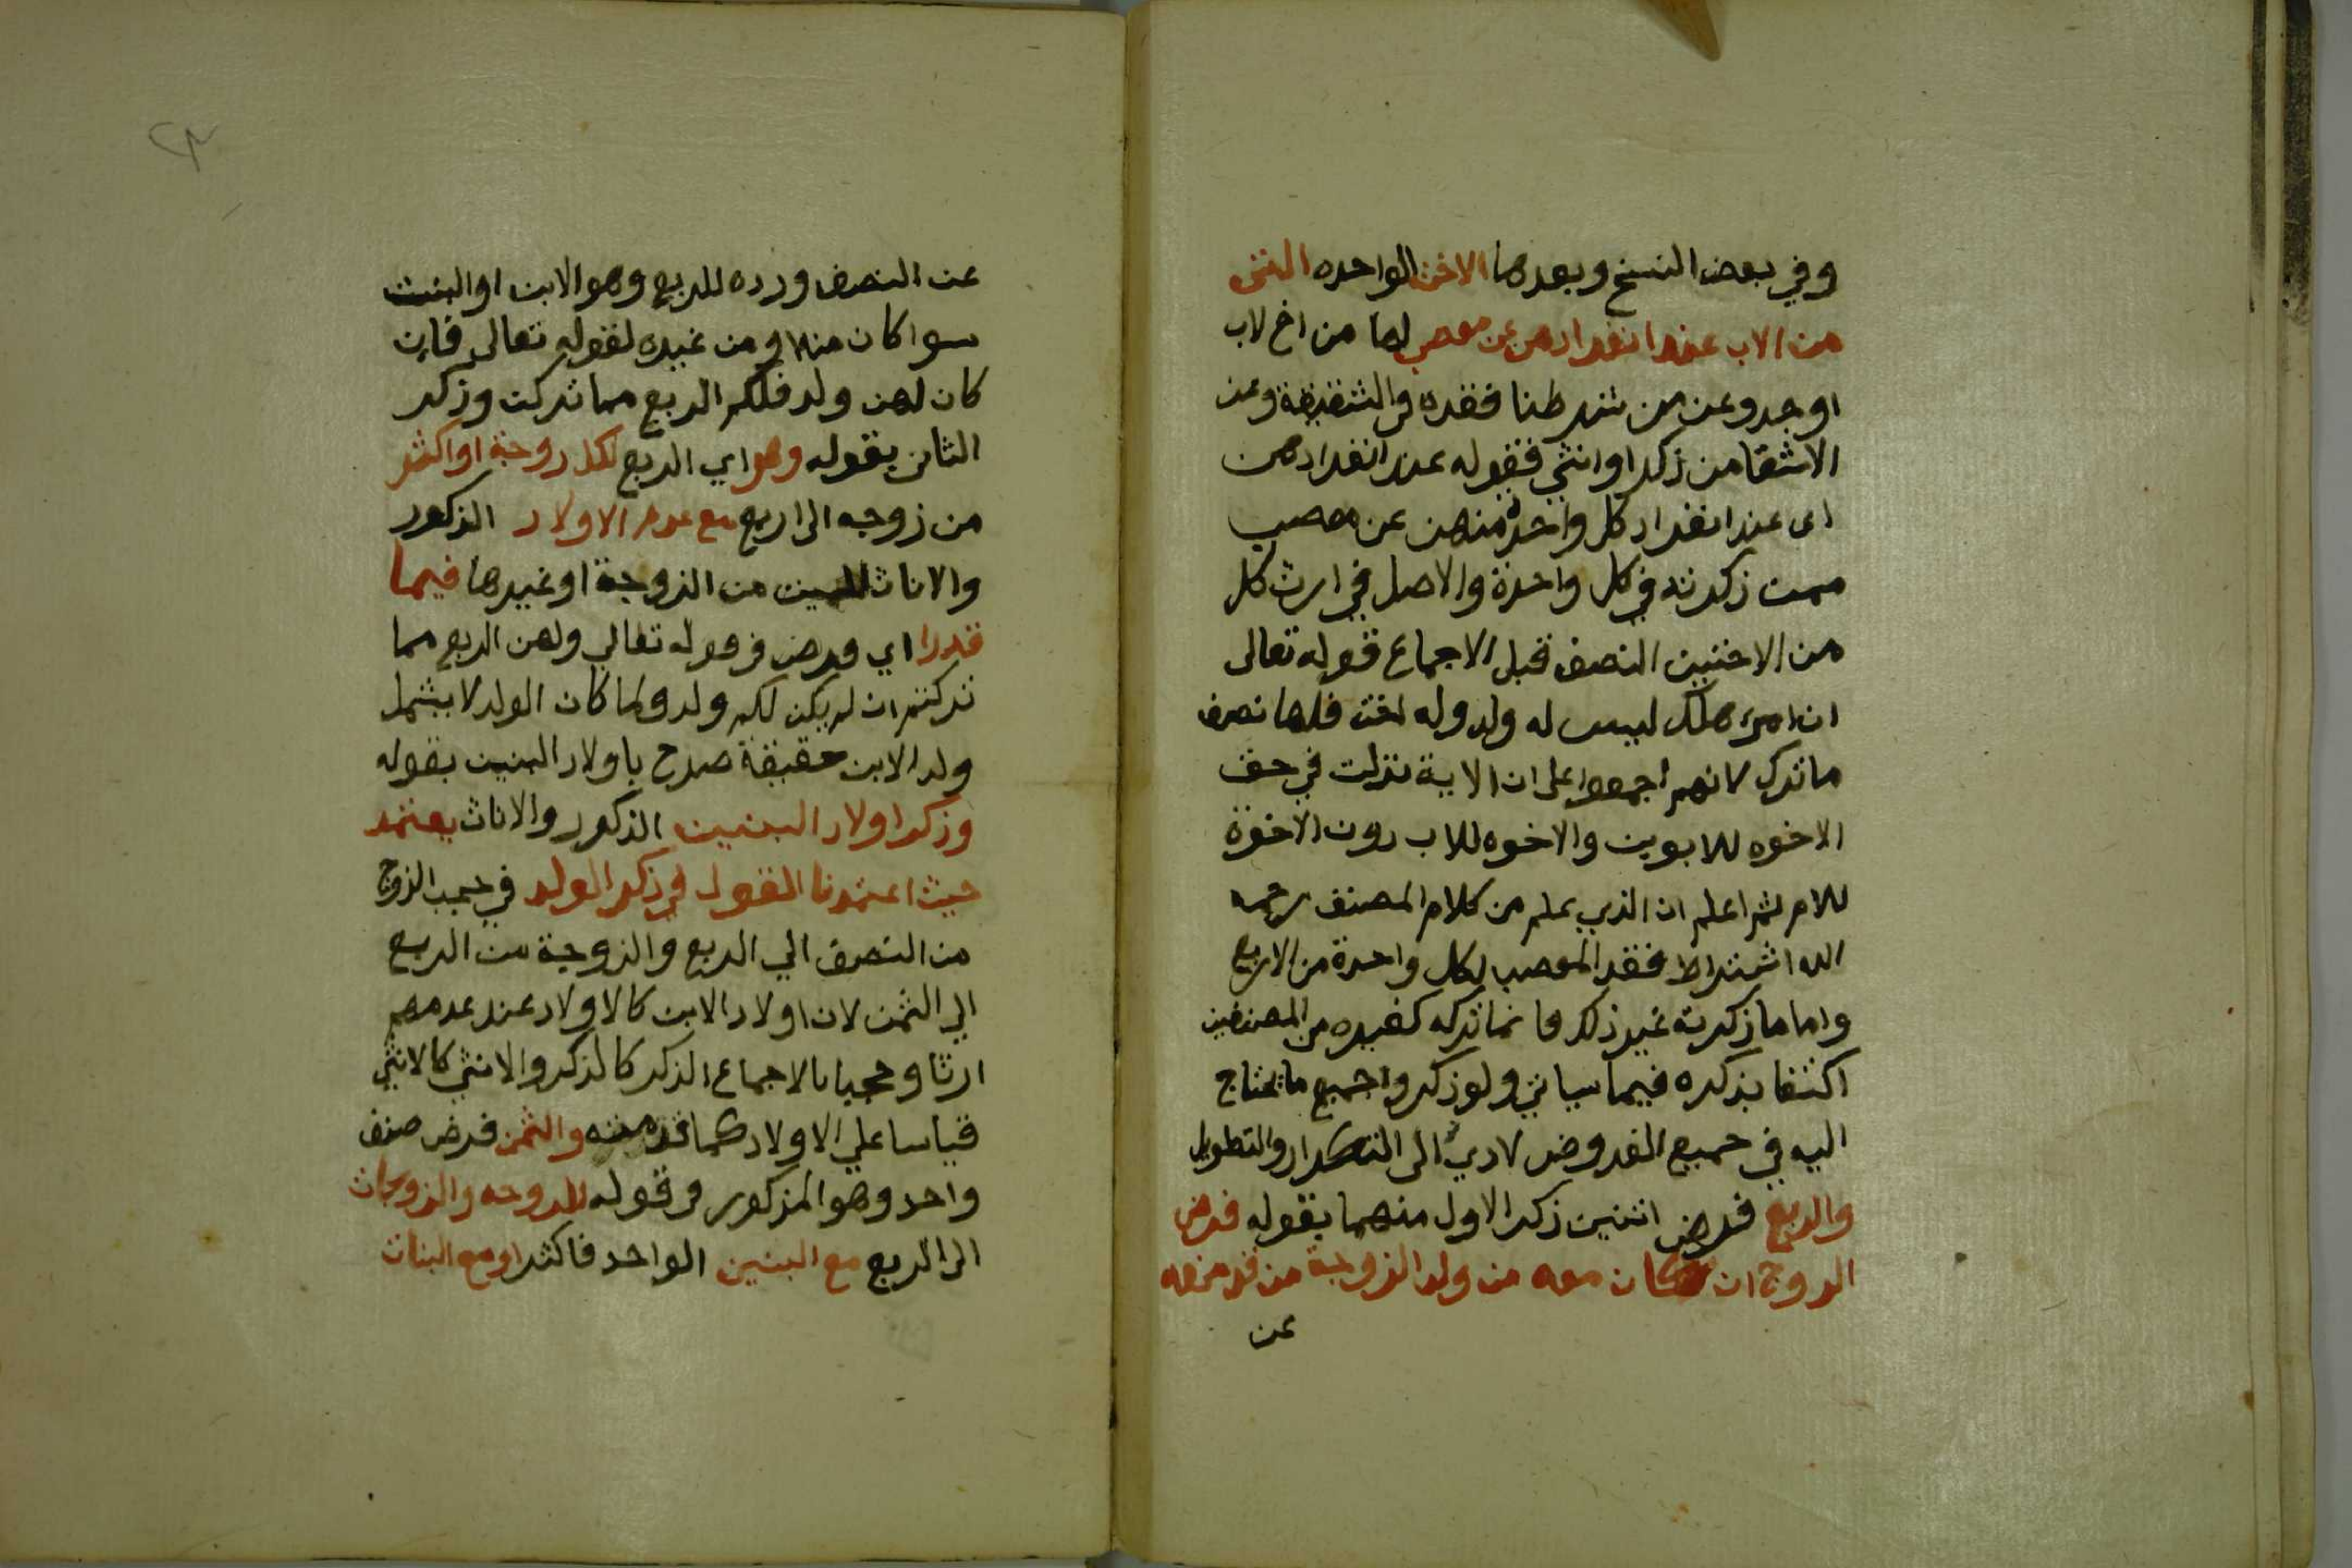 وفي بعض النسخ وبعدها الاخت الواحده التى
من الاب عند انفرادهن عن معصب لها من اخ لاب
او جد وعن من شرطنا فقده في الشقيقة وعن
الاشقا من ذكر او انثي فقوله عند انفرادهن
اى عند انفراد كل واحدة منهن عن معصب
ممن ذكرته في كل واحدة والاصل في ارث كل
من الاختين النصف قبل الاجماع قوله تعالى
ان امرء هلك ليس له ولد وله اخت فلها نصف
ما ترك لانهم اجمعوا على ان الاية نزلت في حق
الاخوه للابوين والاخوه للاب دون الاخوة
للام ثم اعلم ان الذي يعلم من كلام المصنف رحمه
الله اشتراط فقد المعصب لكل واحدة من الاربع
واما ما ذكرته غير ذلك فانما تركه كغيره من المصنفين
اكتفا بذكره فيما سياتي ولو ذكروا جميع ما يحتاج
اليه في جميع الفروض لادي الى التكرار والتطويل
والربع فرض اثنين ذكر الاول منهما بقوله فرض
الزوج ان كان معه من ولد الزوجة من قد منعه
عن
عن النصف ورده للربع وهو الابن او البنت
سوا كان منه او من غيره لقوله تعالى فان
كان لهن ولد فلكم الربع مما تركن وذكر
الثاني بقوله وهو اي الربع لكل زوجة او اكثر
من زوجه الى اربع مع عدم الاولاد الذكور
والاناث للميت من الزوجة او غيرها فيما
قدرا اي فرض في قوله تعالي ولهن الربع مما
تركتم ان لم يكن لكم ولد ولما كان الولد لا يشمل
ولد الابن حقيقة صرح باولاد البنين بقوله
وذكر اولاد البنين الذكور والاناث يعتمد
حيث اعتمدنا القول في ذكر الولد في حجب الزوج
من النصف الي الربع والزوجة من الربع
الي الثمن لان اولاد الابن كالاولاد عند عدمهم
ارثا وحجبا بالاجماع الذكر كالذكر والانثي كالانثي
قياسا علي الاولاد كما قدمته والثمن فرض صنف
واحد وهو المذكور في قوله للزوجه والزوجات
الى الربع مع البنين الواحد فاكثر او مع البنات